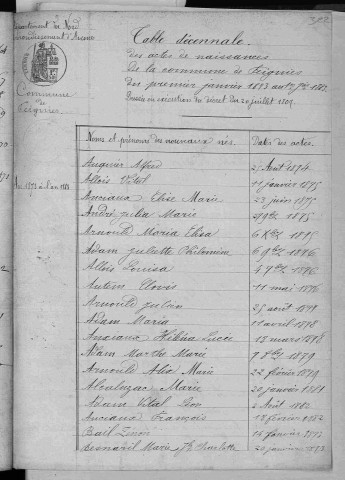 392
Département du Nord
Arrondissement d'Avesnes
Commune
de
Feignies
Table décennale
des actes de naissances
de la commune de Feignies
du premier janvier 1873 au 1er Xbre 1882
Dressée en exécution du décret du 20 juillet 1807
Noms et prénoms des nouveaux nés. Dates des actes.
Auquier Alfred 25 Août 1874
Allois Vital 11 janvier 1875
Anciaux Elise Marie 23 juin 1875
André Julia Marie 29 9bre 1875
Arnould Maria Elisa 6 Xbre 1875
Adam Juliette Philomène 6 9bre 1876
Allois Louisa 4 7bre 1876
Autem Clovis 11 mai 1876
Arnould Julien 25 août 1878
Adam Maria 11 avril 1878
Anciaux Héléna Lucie 15 mars 1878
Adam Marthe Marie 7 8bre 1879
Arnould Alice Marie 22 février 1879
Marie 20 janvier 1881
Adam Vital Léon 2 Août 1882
Anciaux François 18 février 1882
Bail Zénon 14 janvier 1873
Bernard Marie Charlotte 20 janvier 1873